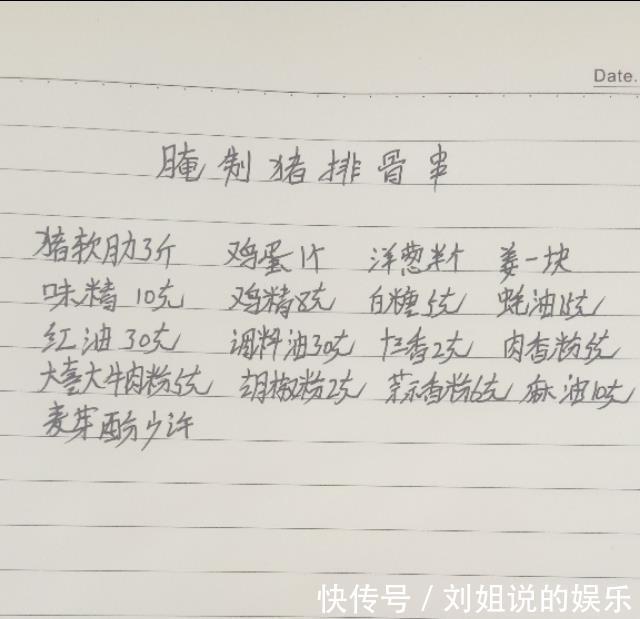 Date.
腌制猪排骨串
猪软肋3斤 鸡蛋1个 洋葱半个 姜一块
味精10克 鸡精8克 白糖5克 蚝油15克
红油30克 调料油30克 十三香2克 肉香粉5克
大喜大牛肉粉5克 胡椒粉2克 蒜香粉6克 麻油10克
麦芽酚少许
快传号/刘姐说的娱乐